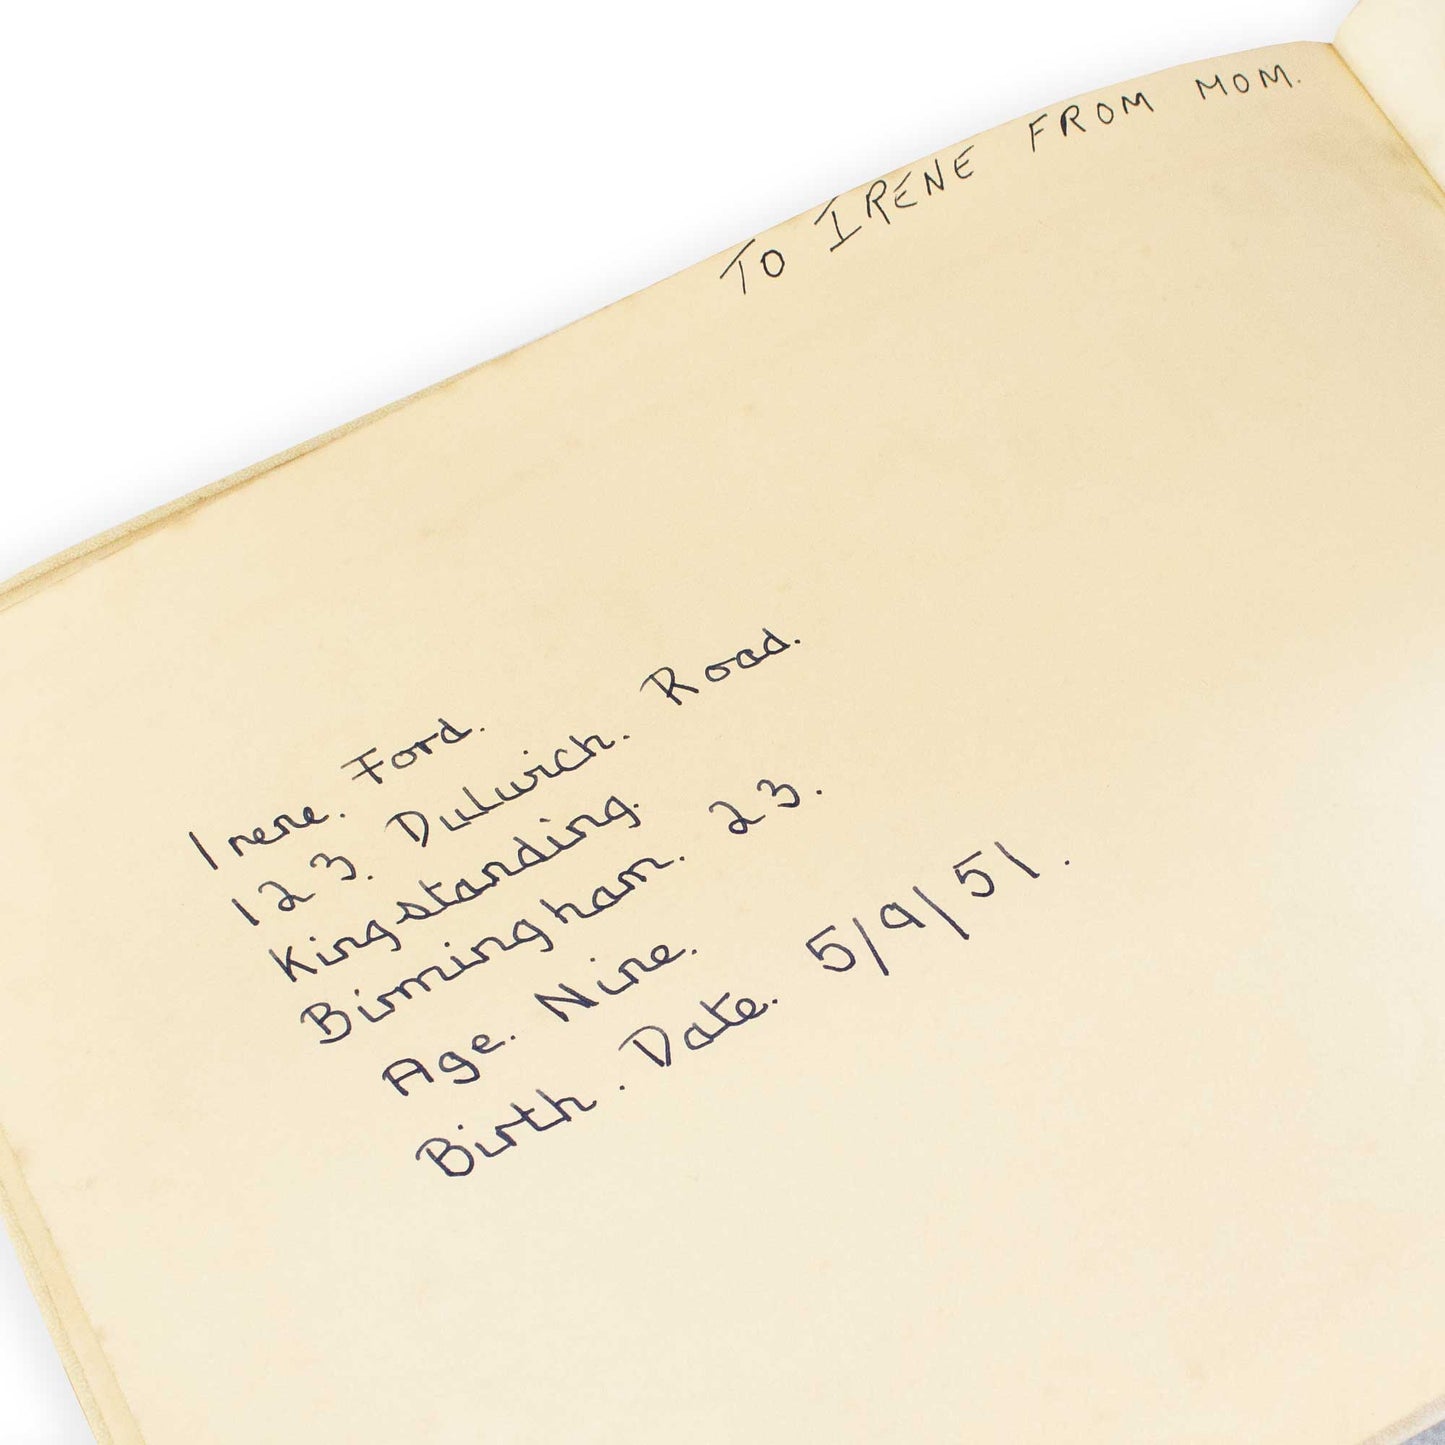 TO IRENE FROM MOM.
Irene. Ford.
123. Dulwich. Road.
Kingstanding.
Birmingham. 23.
Age. Nine.
Birth. Date. 5/9/51.